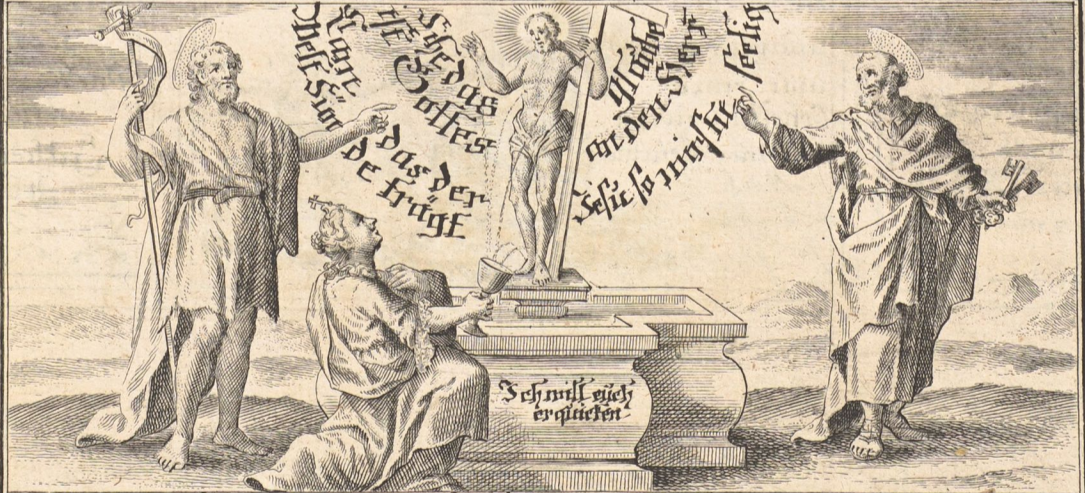 Sihe das
ist Gottes
Lam das der
Welt Sünde trägt
Glaube
an den Hern
Jesu so wirstu seelig
Ich will eüch
erquicken